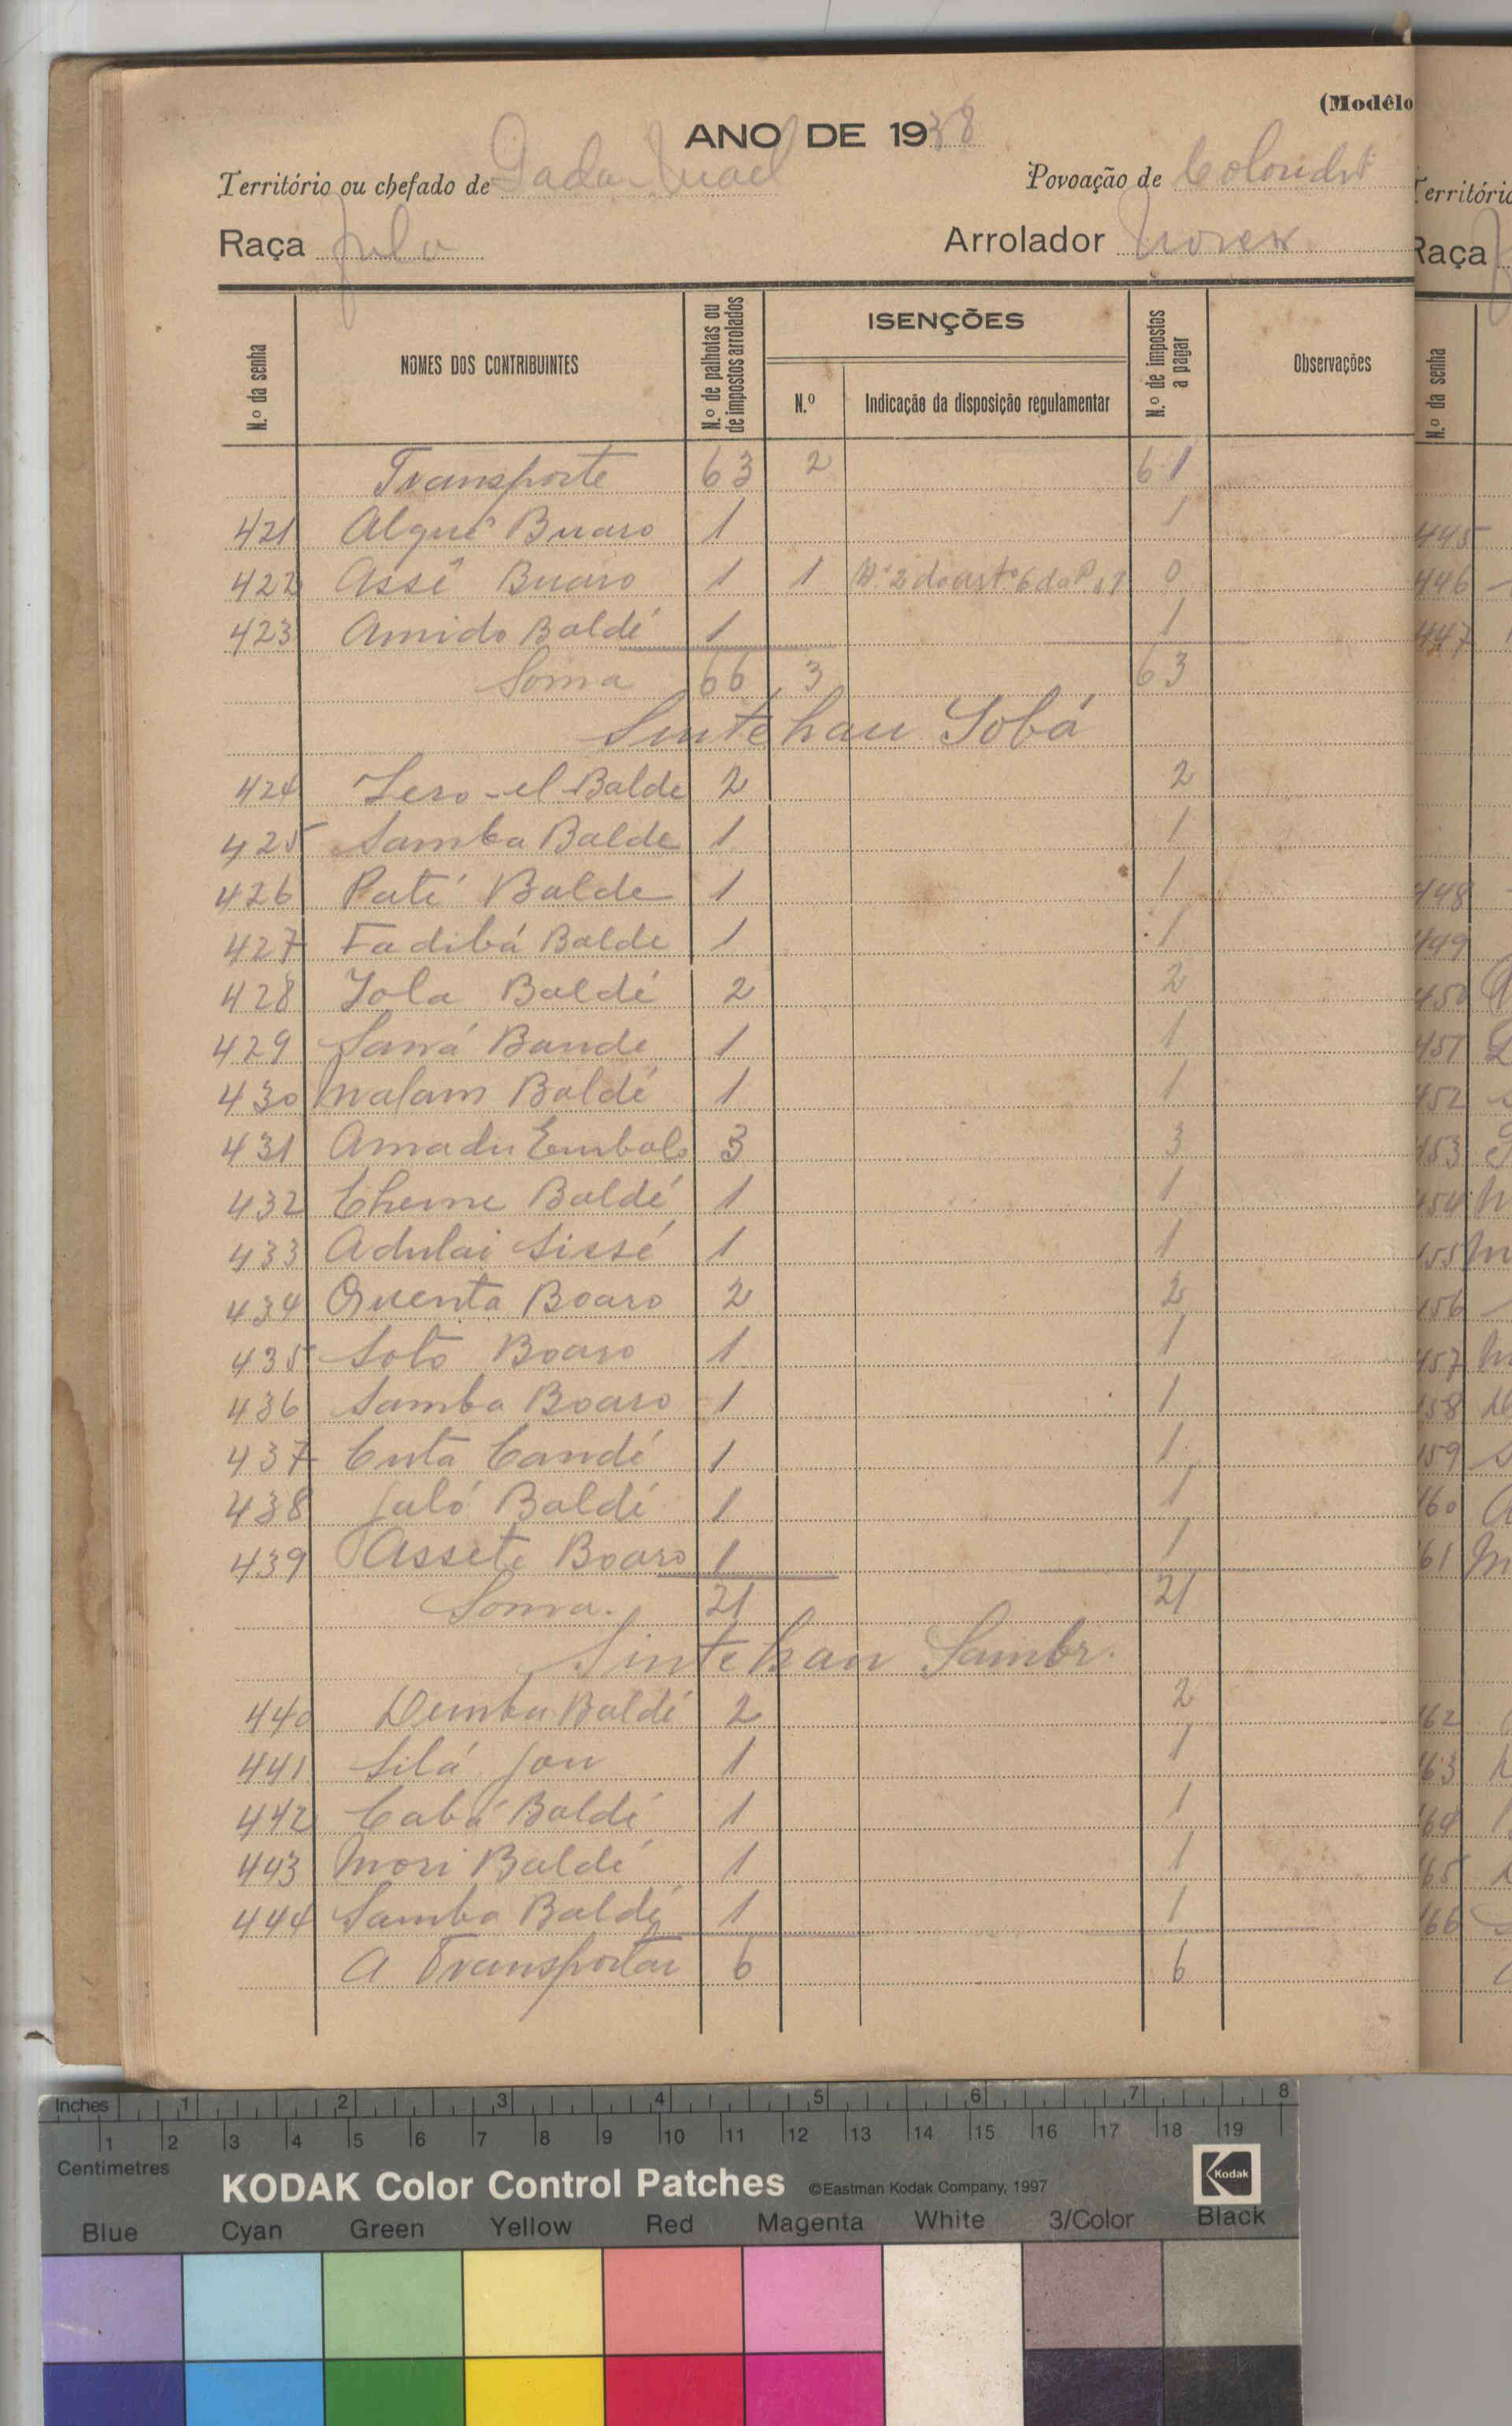 (Modêlo
ANO DE 1938
Território ou chefado de Povoação de
Raça Fulo Arrolador
N.º da senha NOMES DOS CONTRIBUINTES N.º de palhotas ou de impostos arrolados ISENÇÕES N.º Indicação da disposição regulamentar N.º de impostos a pagar Observações
Transporte 63 2 61
421 Algué Buaro 1 1
422 Assê Buaro 1 1 0
423 Amido Baldé 1 1
Soma 66 3 63
Sintchau Iobá
424 Balde 2 2
425 Samba Balde 1 1
426 Paté Balde 1 1
427 Fadibá Balde 1 1
428 Iola Baldé 2 2
429 Bande 1 1
430 Malam Baldé 1 1
431 Amadu Embalo 3 3
432 Cherne Baldé 1 1
433 Adulai Sissé 1 1
434 Quenta Boaro 2 2
435 Soto Boaro 1 1
436 Samba Boaro 1 1
437 Cuta Candé 1 1
438 Jaló Baldé 1 1
439 Assete Boaro 1 1
Soma. 21 21
Sintchau
440 Demba Baldé 2 2
441 Silá Jau 1 1
442 Cabá Baldé 1 1
443 Mori Baldé 1 1
444 Samba Baldé 1 1
A Transportar 6 6
Território
Raça
N.º da senha
445
446
447
448
449
450
451
452
453
Inches 1 2 3 4 5 6 7 8
1 2 3 4 5 6 7 8 9 10 11 12 13 14 15 16 17 18 19
Centimetres
KODAK Color Control Patches ©Eastman Kodak Company, 1997 Kodak
Blue Cyan Green Yellow Red Magenta White 3/Color Black